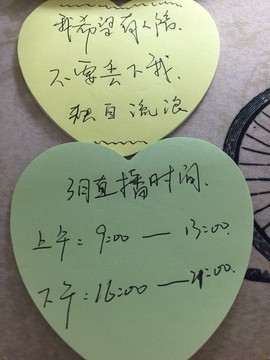 我希望有人陪.
不要丢下我.
独自流浪
3月直播时间.
上午：9:00 — 13:00.
下午：16:00 — 21:00.